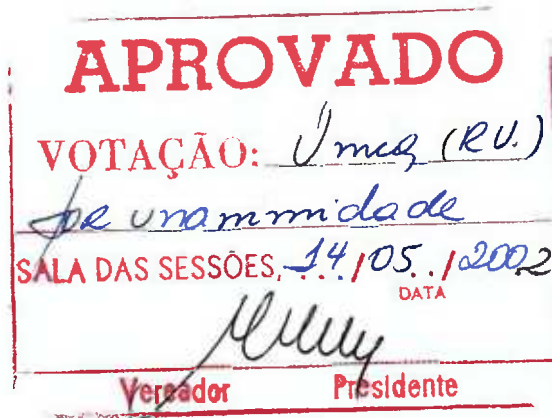 APROVADO
VOTAÇÃO: Única (R.U.)
por unanimidade
SALA DAS SESSÕES, 14/05../2002
DATA
Vereador Presidente